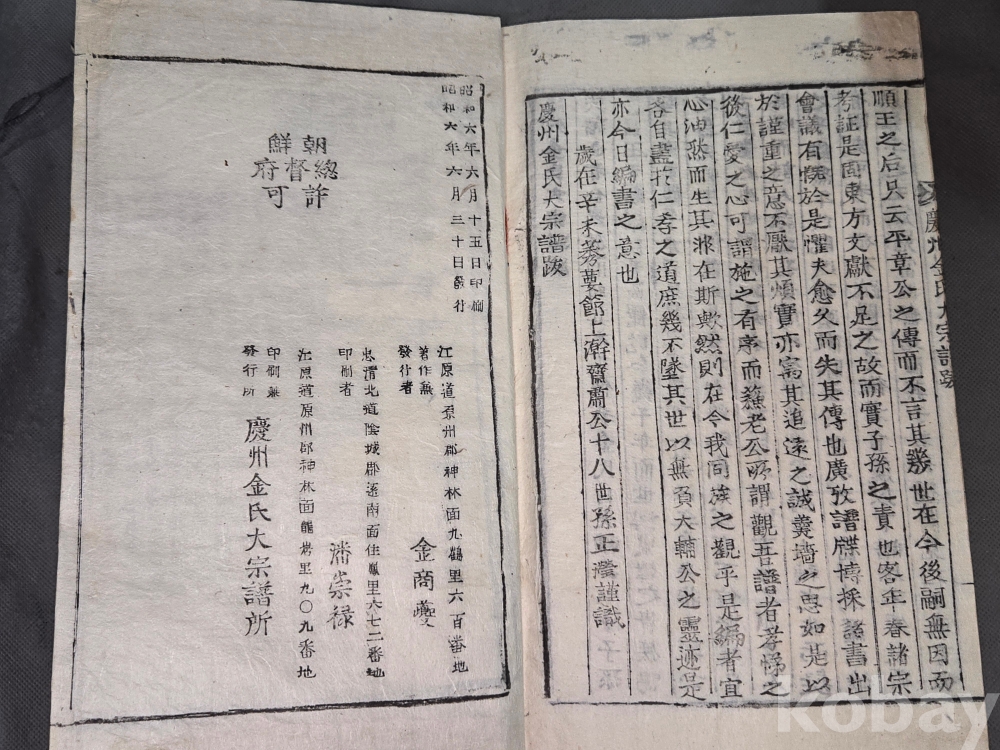 慶州金氏大宗譜跋
順王之后只云平章公之傳而不言其幾世在今後嗣無因而
考証是固東方文獻不足之故而實子孫之責也客年春諸宗
會議有慌於是懼夫愈久而失其傳也廣攷譜牒博採諸書出
於謹重之意不厭其煩實亦寓其追遠之誠羹墻之思如是以
後仁愛之心可謂施之有序而蘓老公所謂觀吾譜者孝悌之
心油然而生其將在斯歟然則在今我同族之觀乎是編者宜
各自盡於仁孝之道庶幾不墜其世以無負大輔公之靈迹是
亦今日編書之意也
歲在辛未莠葽節上澣齋肅公十八世孫正瀅謹識
慶州金氏大宗譜跋
昭和六年六月十五日印刷
昭和六年六月三十日發行
朝鮮總督府許可
江原道原州郡神林面九鶴里六百番地
著作兼發行者 金商夔
忠清北道陰城郡遠南面住鳳里六七二番地
印刷者 潘崇禄
江原道原州郡神林面龍岩里九〇九番地
印刷兼發行所 慶州金氏大宗譜所
kobay